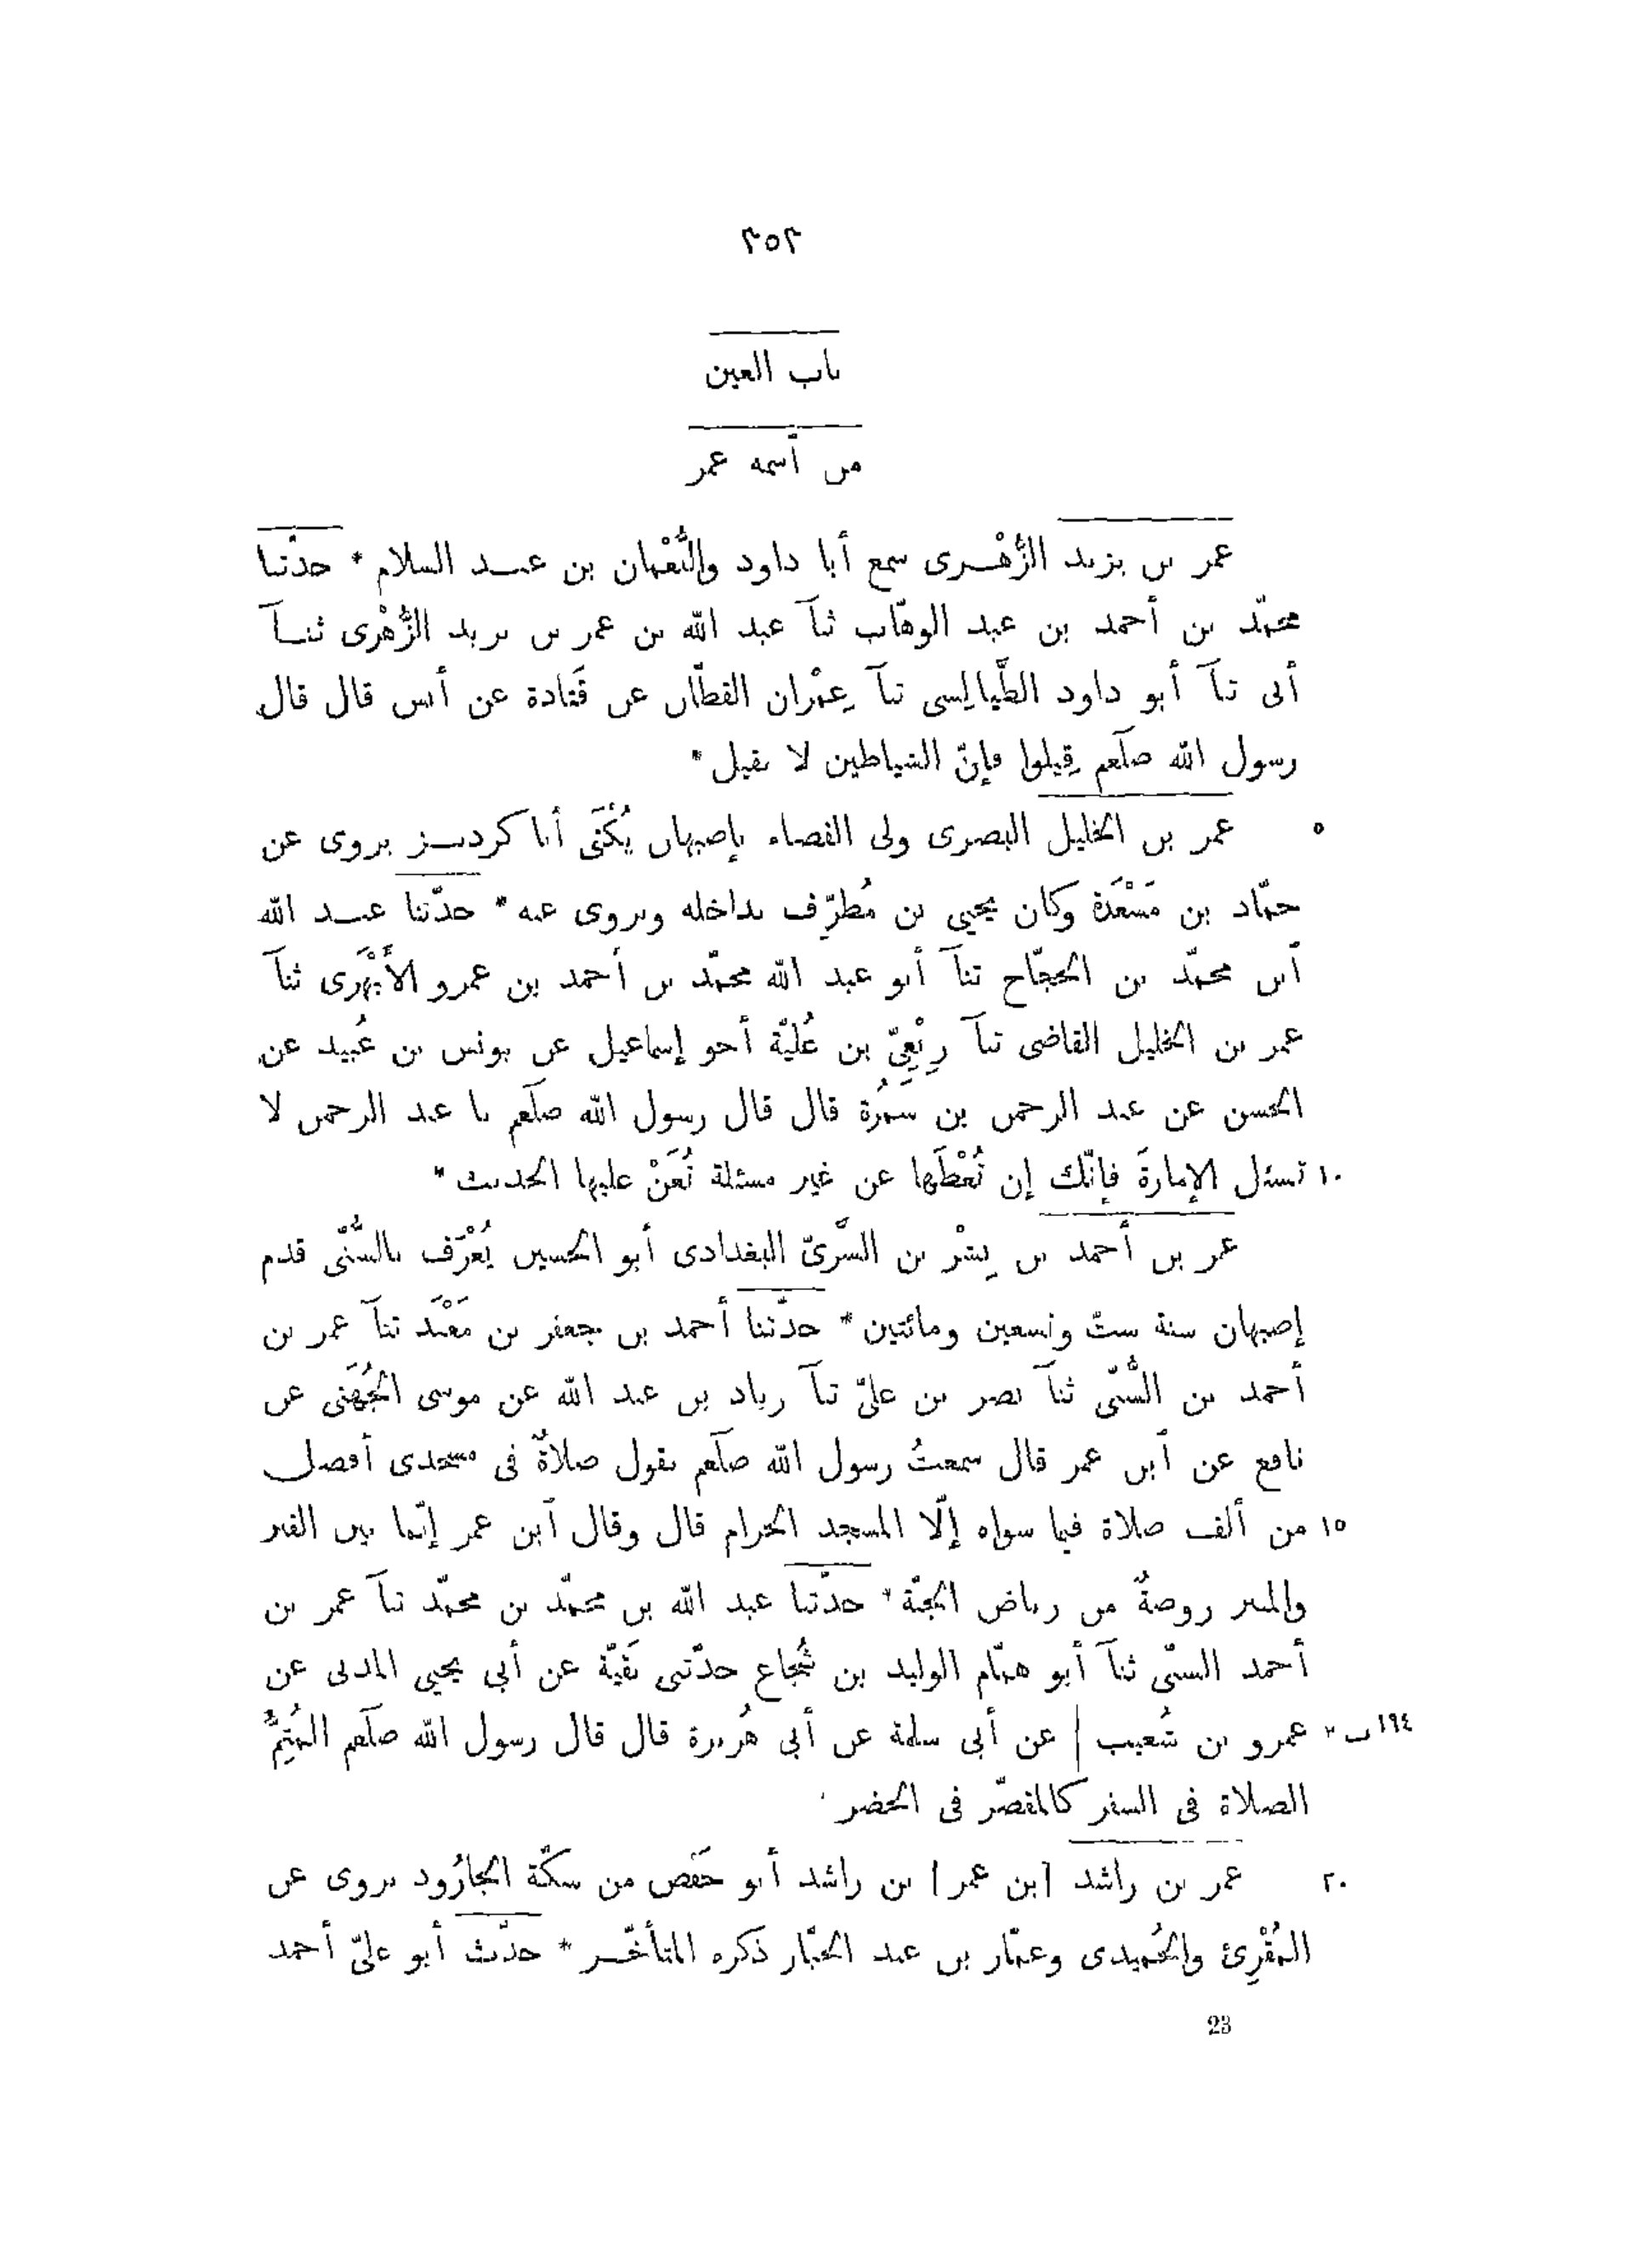 ٣٥٣
باب العين
من ٱسمه عمر
عمر بن يزيد الزُّهْرى سمع أبا داود والنُّعْمان بن عبد السلام * حدّثنا
محمّد بن أحمد بن عبد الوهّاب ثنآ عبد الله بن عمر بن يزيد الزُّهْرى ثنآ
أبى ثنآ أبو داود الطَّيالِسى ثنآ عِمْران القطّان عن قَتادة عن أنس قال قال
رسول الله صلّعم قِيلوا فإنّ الشياطين لا تقيل *
٥ عمر بن الخليل البصرى ولى القضاء بإصبهان يُكْنَى أبا كرديز يروى عن
حمّاد بن مَسْعَدة وكان يحيى بن مُطرِّف يداخله ويروى عنه * حدّثنا عبد الله
ٱبن محمّد بن الحجّاج ثنآ أبو عبد الله محمّد بن أحمد بن عمرو الأَبْهَرى ثنآ
عمر بن الخليل القاضى ثنآ رِبْعِىّ بن عُليّة أخو إسماعيل عن يونس بن عُبيد عن
الحسن عن عبد الرحمن بن سَمُرة قال قال رسول الله صلّعم يا عبد الرحمن لا
١٠ تسئل الإمارةَ فإنّك إن تُعْطَها عن غير مسئلة تُعَنْ عليها الحديث *
عمر بن أحمد بن بِشْر بن السَّرِىّ البغدادى أبو الحسين يُعْرَف بالسُّنّى قدم
إصبهان سنة ستّ وتسعين ومائتين * حدّثنا أحمد بن جعفر بن مَعْبَد ثنآ عمر بن
أحمد بن السُّنّى ثنآ نصر بن علىّ ثنآ زياد بن عبد الله عن موسى الجُهَنى عن
نافع عن ٱبن عمر قال سمعتُ رسول الله صلّعم يقول صلاةٌ فى مسجدى أفضل
١٥ من ألف صلاة فيما سواه إلّا المسجد الحرام قال وقال ٱبن عمر إنّما بين القبر
والمنبر روضةٌ من رياض الجنّة * حدّثنا عبد الله بن محمّد بن محمّد ثنآ عمر بن
أحمد السنّى ثنآ أبو همّام الوليد بن شُجاع حدّثنى بَقيّة عن أبى يحيى المدنى عن
١٩٤ ب * عمرو بن شُعيب | عن أبى سلمة عن أبى هُريرة قال قال رسول الله صلّعم المُتِمُّ
الصلاة فى السفر كالمقصّر فى الحضر *
٢٠ عمر بن راشد [بن عمر] بن راشد أبو حَفص من سكّة الجارُود يروى عن
المُقْرِئ والحُميدى وعمّار بن عبد الجبّار ذكره المتأخّر * حدّث أبو علىّ أحمد
23